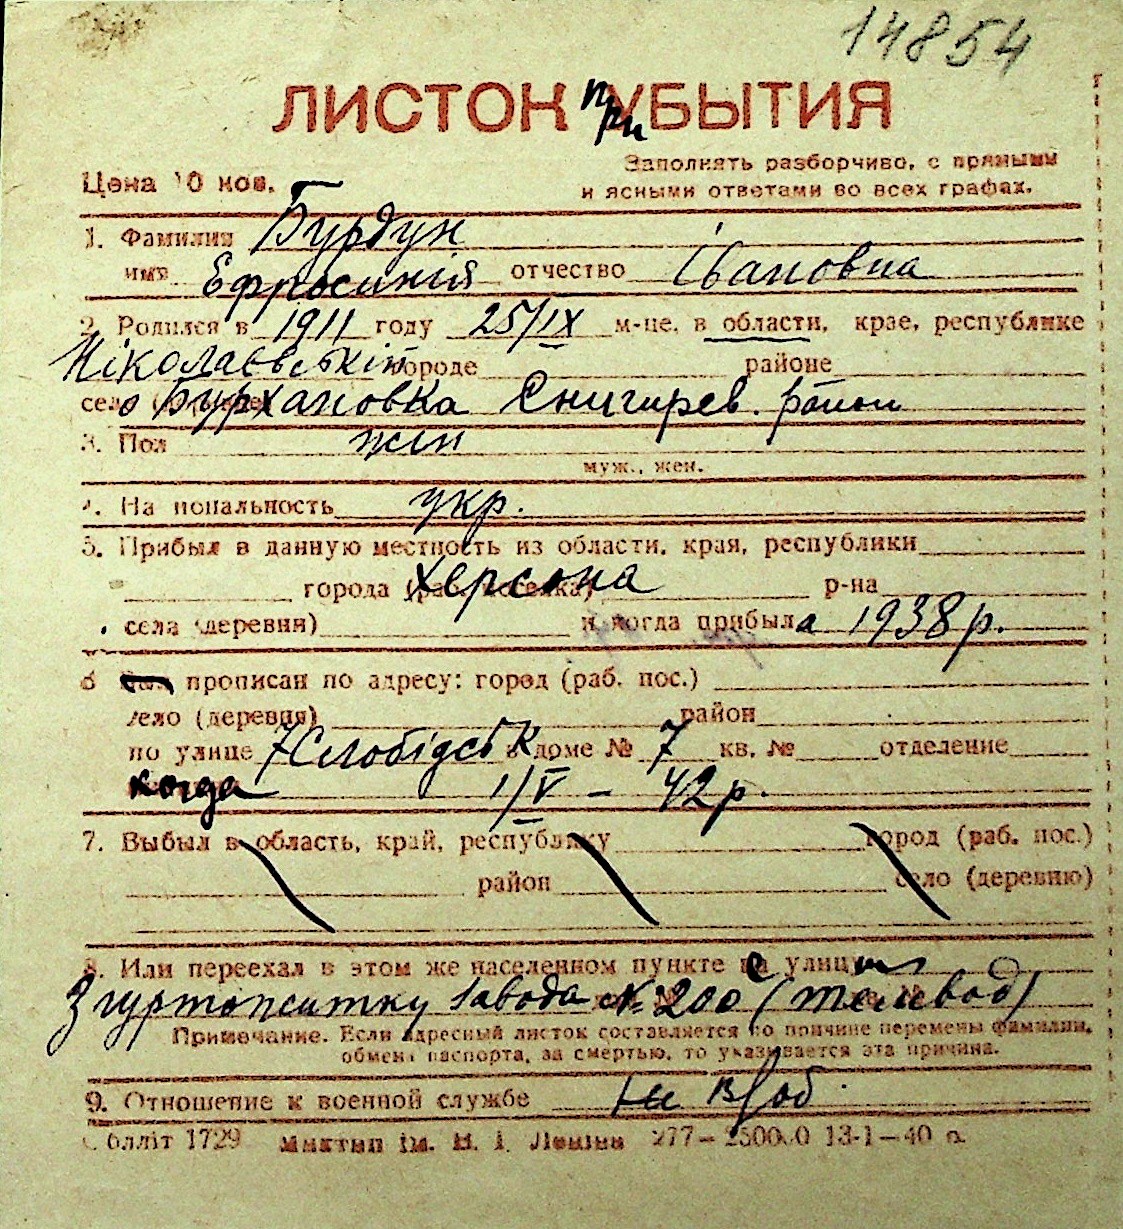 14854
ЛИСТОК при УБЫТИЯ
Заполнять разборчиво, с прямыми
Цена 10 коп.
и ясными ответами во всех графах.
1. Фамилия Бурдун
имя Ефросиния отчество Івановна
2. Родился в 1911 году 25/IX м-це, в области, крае, республике
Ніколаєвській городе районе
село Бурхановка Снигирев. район
3. Пол жін
муж., жен.
4. Национальность укр.
5. Прибыл в данную местность из области, края, республики
города (раб. поселка) Херсона р-на
села (деревни) и когда прибыла 1938 р.
6 прописан по адресу: город (раб. пос.)
село (деревня) район
по улице 7 Слобідськ в доме № 7 кв. № отделение
когда 1/V – 42 р.
7. Выбыл в область, край, республику город (раб. пос.)
район село (деревню)
8. Или переехал в этом же населенном пункте с улицы
З гуртожитку завода № 200
Примечание. Если адресный листок составляется по причине перемены фамилии,
обмена паспорта, за смертью, то указывается эта причина.
9. Отношение к военной службе
бліт 1729 ім. В. І. Леніна 277–2500.0 13-1–40 р.